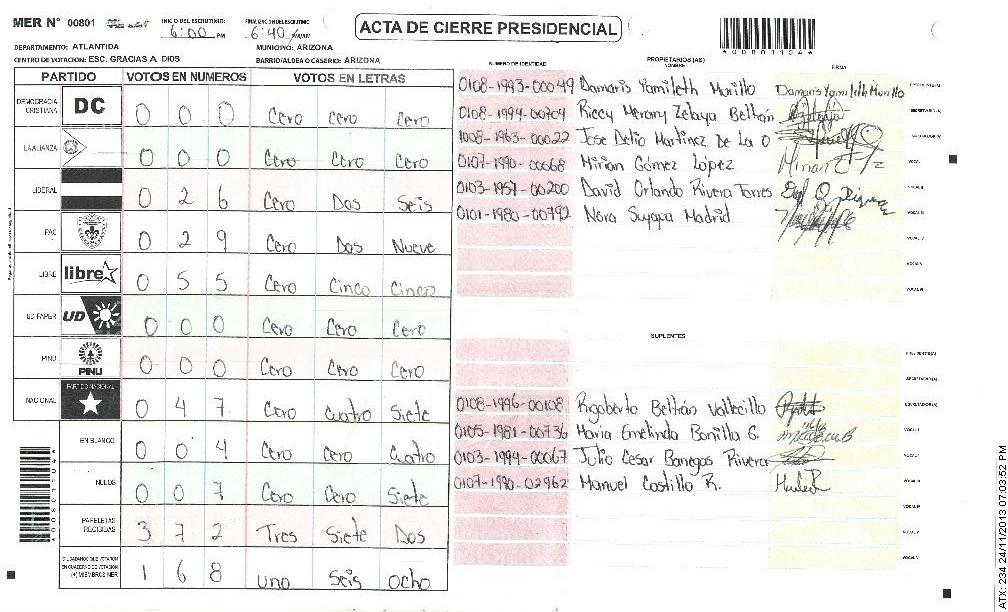 MER N° 00801
INICIO DEL ESCRUTINIO: 6:00 PM
FINALIZACION DEL ESCRUTINIO: 6:40
ACTA DE CIERRE PRESIDENCIAL
*00801104*
DEPARTAMENTO: ATLANTIDA
MUNICIPIO: ARIZONA
CENTRO DE VOTACION: ESC. GRACIAS A DIOS
BARRIO/ALDEA O CASERIO: ARIZONA
PARTIDO VOTOS EN NUMEROS VOTOS EN LETRAS
DEMOCRACIA CRISTIANA DC 0 0 0 Cero Cero Cero
LA ALIANZA 0 0 0 Cero Cero Cero
LIBERAL 0 2 6 Cero Dos Seis
PAC 0 2 9 Cero Dos Nueve
LIBRE libre 0 5 5 Cero Cinco Cinco
UD FAPER UD 0 0 0 Cero Cero Cero
PINU PINU 0 0 0 Cero Cero Cero
NACIONAL PARTIDO NACIONAL 0 4 7 Cero Cuatro Siete
EN BLANCO 0 0 4 Cero Cero Cuatro
NULOS 0 0 7 Cero Cero Siete
PAPELETAS RECIBIDAS 3 7 2 Tres Siete Dos
CIUDADANOS QUE VOTARON EN CUADERNO DE VOTACION (+) MIEMBROS MER 1 6 8 Uno Seis Ocho
NUMERO DE IDENTIDAD PROPIETARIOS (AS) NOMBRE FIRMA
0108-1993-00049 Damaris Yamileth Murillo Damaris Yamileth Murillo PRESIDENTE(A)
0108-1994-00704 Riccy Merany Zelaya Beltrán SECRETARIO(A)
1008-1963-00022 Jose Delio Martinez De La O ESCRUTADOR(A)
0107-1990-00068 Mirian Gómez López VOCAL I
0103-1957-00200 David Orlando Rivera Torres VOCAL II
0101-1980-00792 Nora Suyapa Madrid VOCAL III
VOCAL IV
VOCAL V
VOCAL VI
SUPLENTES
PRESIDENTE(A)
SECRETARIO(A)
0108-1996-00108 Rigoberto Beltrán Vallecillo ESCRUTADOR(A)
0105-1981-00736 Maria Emelinda Bonilla G. VOCAL I
0103-1994-00067 Julio Cesar Banegas Rivera VOCAL II
0107-1990-02962 Manuel Castillo R. VOCAL III
VOCAL IV
VOCAL V
VOCAL VI
ATX: 234 24/11/2013 07:03:52 PM